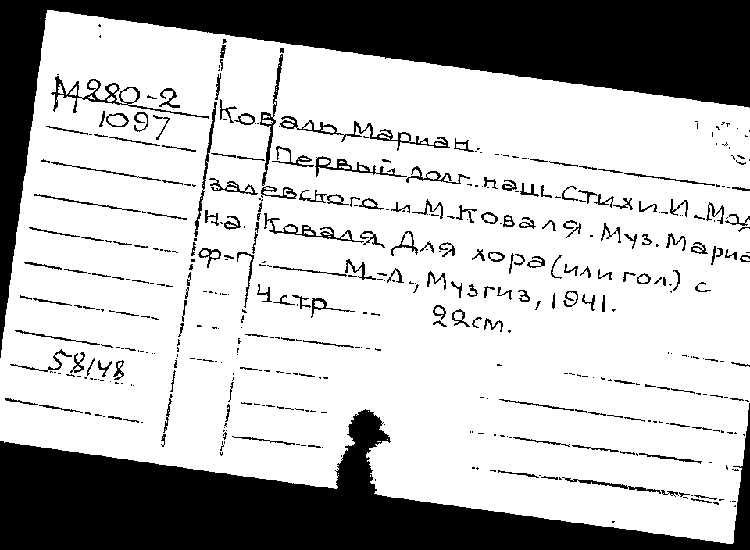 М280-2
1097
Коваль, Мариан.
Первый долг наш Стихи И. Мод
залевского и М. Коваля. Муз. Мариа
на Коваля Для хора (или гол.) с
ф-п М.-Л., Музгиз, 1941.
4 стр 22см.
58148